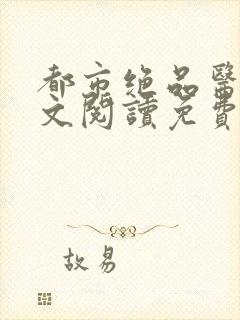 都市絕品醫
文閱讀免費
故易